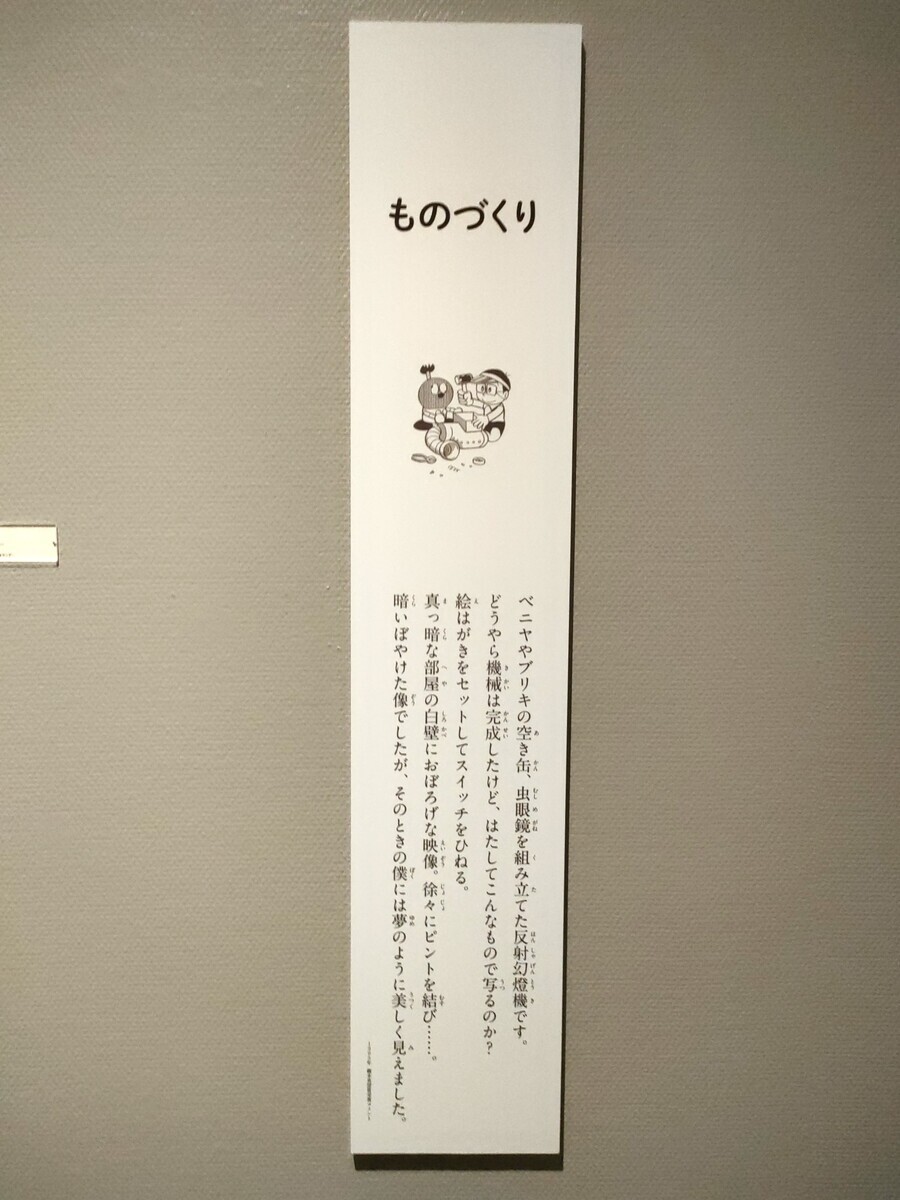 ものづくり
ベニヤやブリキの空き缶、虫眼鏡を組み立てた反射幻燈機です。
どうやら機械は完成したけど、はたしてこんなもので写るのか?
絵はがきをセットしてスイッチをひねる。
真っ暗な部屋の白壁におぼろげな映像。徐々にピントを結び……。
暗いぼやけた像でしたが、そのときの僕には夢のように美しく見えました。